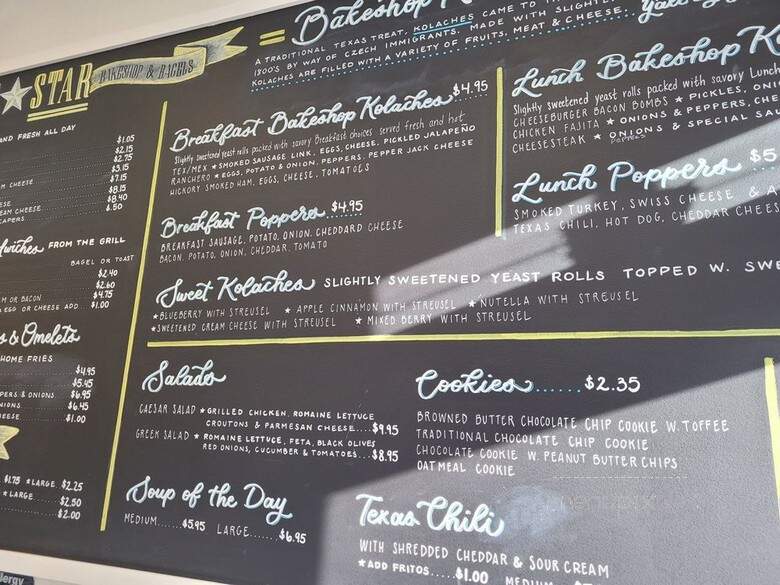 STAR
BAKESHOP & BAGELS
AND FRESH ALL DAY
$1.05
$2.15
$2.75
$5.15
M CHEESE $7.15
$8.15
ESE $8.40
EAM CHEESE $.50
CAPERS
FROM THE GRILL
BAGEL OR TOAST
$2.40
$2.60
M OR BACON $4.75
EGG OR CHEESE ADD $1.00
s & Omelets
HOME FRIES
$4.95
$5.45
PERS & ONIONS $6.95
NIONS $6.45
EESE $1.00
$1.75 ★LARGE $2.25
★LARGE $2.50
$2.00
= Bakeshop
A TRADITIONAL TEXAS TREAT, KOLACHES CAME TO
1800'S BY WAY OF CZECH IMMIGRANTS. MADE WITH SLIGHTLY
KOLACHES ARE FILLED WITH A VARIETY OF FRUITS, MEAT & CHEESE.
Breakfast Bakeshop Kolaches $4.95
Slightly sweetened yeast rolls packed with savory Breakfast choices served fresh and hot
TEX/MEX ★ SMOKED SAUSAGE LINK, EGGS, CHEESE, PICKLED JALAPEÑO
RANCHERO ★ EGGS, POTATO & ONION, PEPPERS, PEPPER JACK CHEESE
HICKORY SMOKED HAM, EGGS, CHEESE, TOMATOES
Breakfast Poppers $4.95
BREAKFAST SAUSAGE, POTATO, ONION, CHEDDARD CHEESE
BACON, POTATO, ONION, CHEDDAR, TOMATO
Lunch Bakeshop Ko
Slightly sweetened yeast rolls packed with savory Lunch
CHEESEBURGER BACON BOMBS ★ PICKLES, ONI
CHICKEN FAJITA ★ ONIONS & PEPPERS, CHE
CHEESESTEAK ★ ONIONS & SPECIAL SA
Lunch Poppers $5
SMOKED TURKEY, SWISS CHEESE & A
TEXAS CHILI, HOT DOG, CHEDDAR CHEES
Sweet Kolaches SLIGHTLY SWEETENED YEAST ROLLS TOPPED W. SWE
★ BLUEBERRY WITH STREUSEL ★ APPLE CINNAMON WITH STREUSEL ★ NUTELLA WITH STREUSEL
★ SWEETENED CREAM CHEESE WITH STREUSEL ★ MIXED BERRY WITH STREUSEL
Salads
CAESAR SALAD ★ GRILLED CHICKEN, ROMAINE LETTUCE
CROUTONS & PARMESAN CHEESE....$9.95
GREEK SALAD ★ ROMAINE LETTUCE, FETA, BLACK OLIVES
RED ONIONS, CUCUMBER & TOMATOES...$8.95
Soup of the Day
MEDIUM.....$5.95 LARGE.....$6.95
Cookies......$2.35
BROWNED BUTTER CHOCOLATE CHIP COOKIE W. TOFFEE
TRADITIONAL CHOCOLATE CHIP COOKIE
CHOCOLATE COOKIE W. PEANUT BUTTER CHIPS
OATMEAL COOKIE
Texas Chili
WITH SHREDDED CHEDDAR & SOUR CREAM
★ ADD FRITOS.....$1.00 MEDIUM